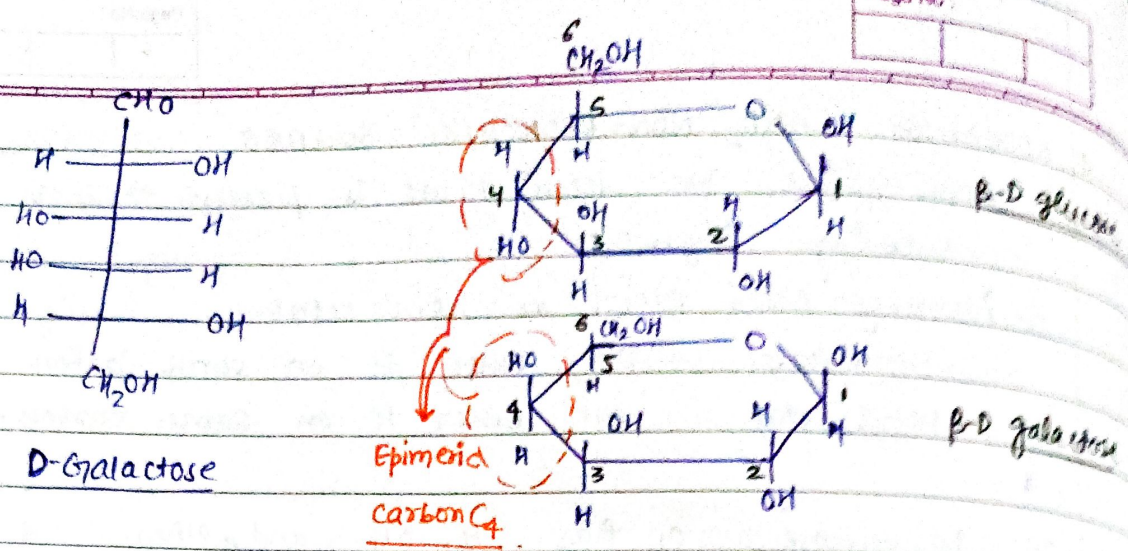 CHO
H OH
HO H
HO H
H OH
CH2OH
D-Galactose
6
CH2OH
5 O
H OH
H
4 OH H 1
HO 3 2 H
H OH
β-D glucose
6 CH2OH O
HO 5 OH
H
4 OH H 1
H H
3 2
H OH
β-D galactose
Epimeric
Carbon C4